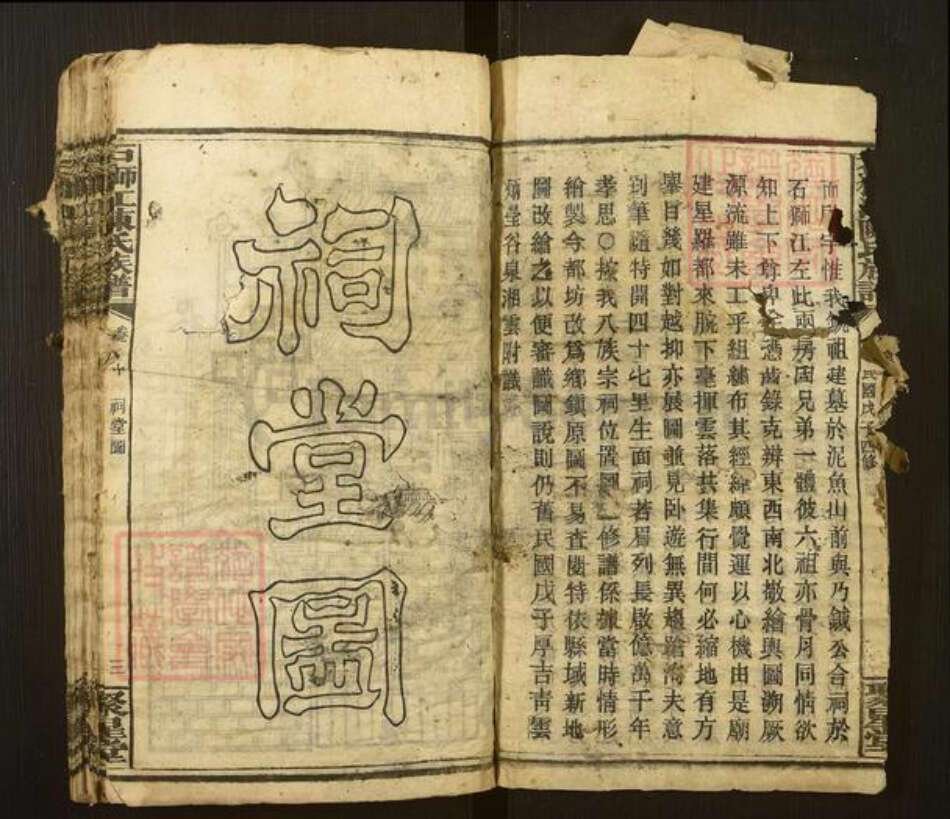 而居宇惟我銳祖建墓於泥魚山前與乃鉞公合祠於
石獅江左此兩房固兄弟一體彼六祖亦骨月同情欲
知上下尊卑全憑齒錄克辨東西南北撤繪輿圖溯厥
源流雖未工乎組繡布其經緯頗覺運以心機由是廟
建星羅都來腕下毫揮雲落共集行間何必縮地有方
舉目幾如對越抑亦展圖並見卧遊無異趨蹌淘夫意
到筆隨特開四十七里生面祠若眉列長啟億萬千年
孝思○按我八族宗祠位置圖一修譜係據當時情形
繪製今都坊改爲鄉鎮原圖不易查閱特依縣域新地
圖改繪之以便審識圖說則仍舊民國戊子厚吉靑雲
炳堂谷泉湘雲附識
民國戊子四修
聚星堂
祠堂圖
石獅江陳氏族譜
卷八十
祠堂圖
三
聚星堂